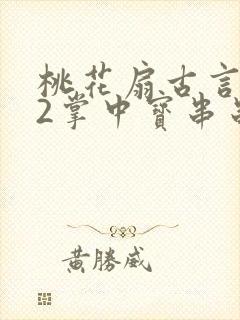 桃花扇古言
2掌中寶串
黃勝威